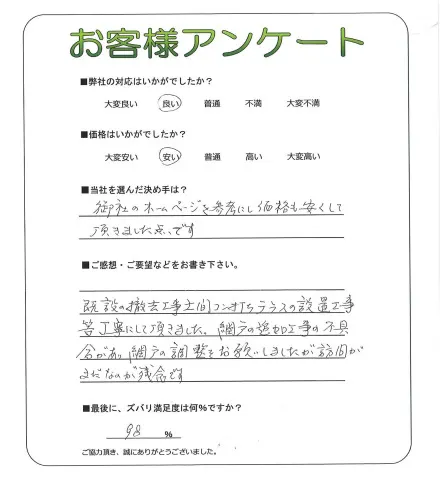 お客様アンケート
■弊社の対応はいかがでしたか？
大変良い 良い 普通 不満 大変不満
■価格はいかがでしたか？
大変安い 安い 普通 高い 大変高い
■当社を選んだ決め手は？
御社のホームページを参考にし価格も安くして
頂きました点です
■ご感想・ご要望などをお書き下さい。
既設の撤去工事土間コン打ちテラスの設置工事
等丁寧にして頂きました、網戸の追加工事の不具
合があり網戸の調整をお願いしましたが訪問が
まだなのが残念です
■最後に、ズバリ満足度は何%ですか？
98 %
ご協力頂き、誠にありがとうございました。